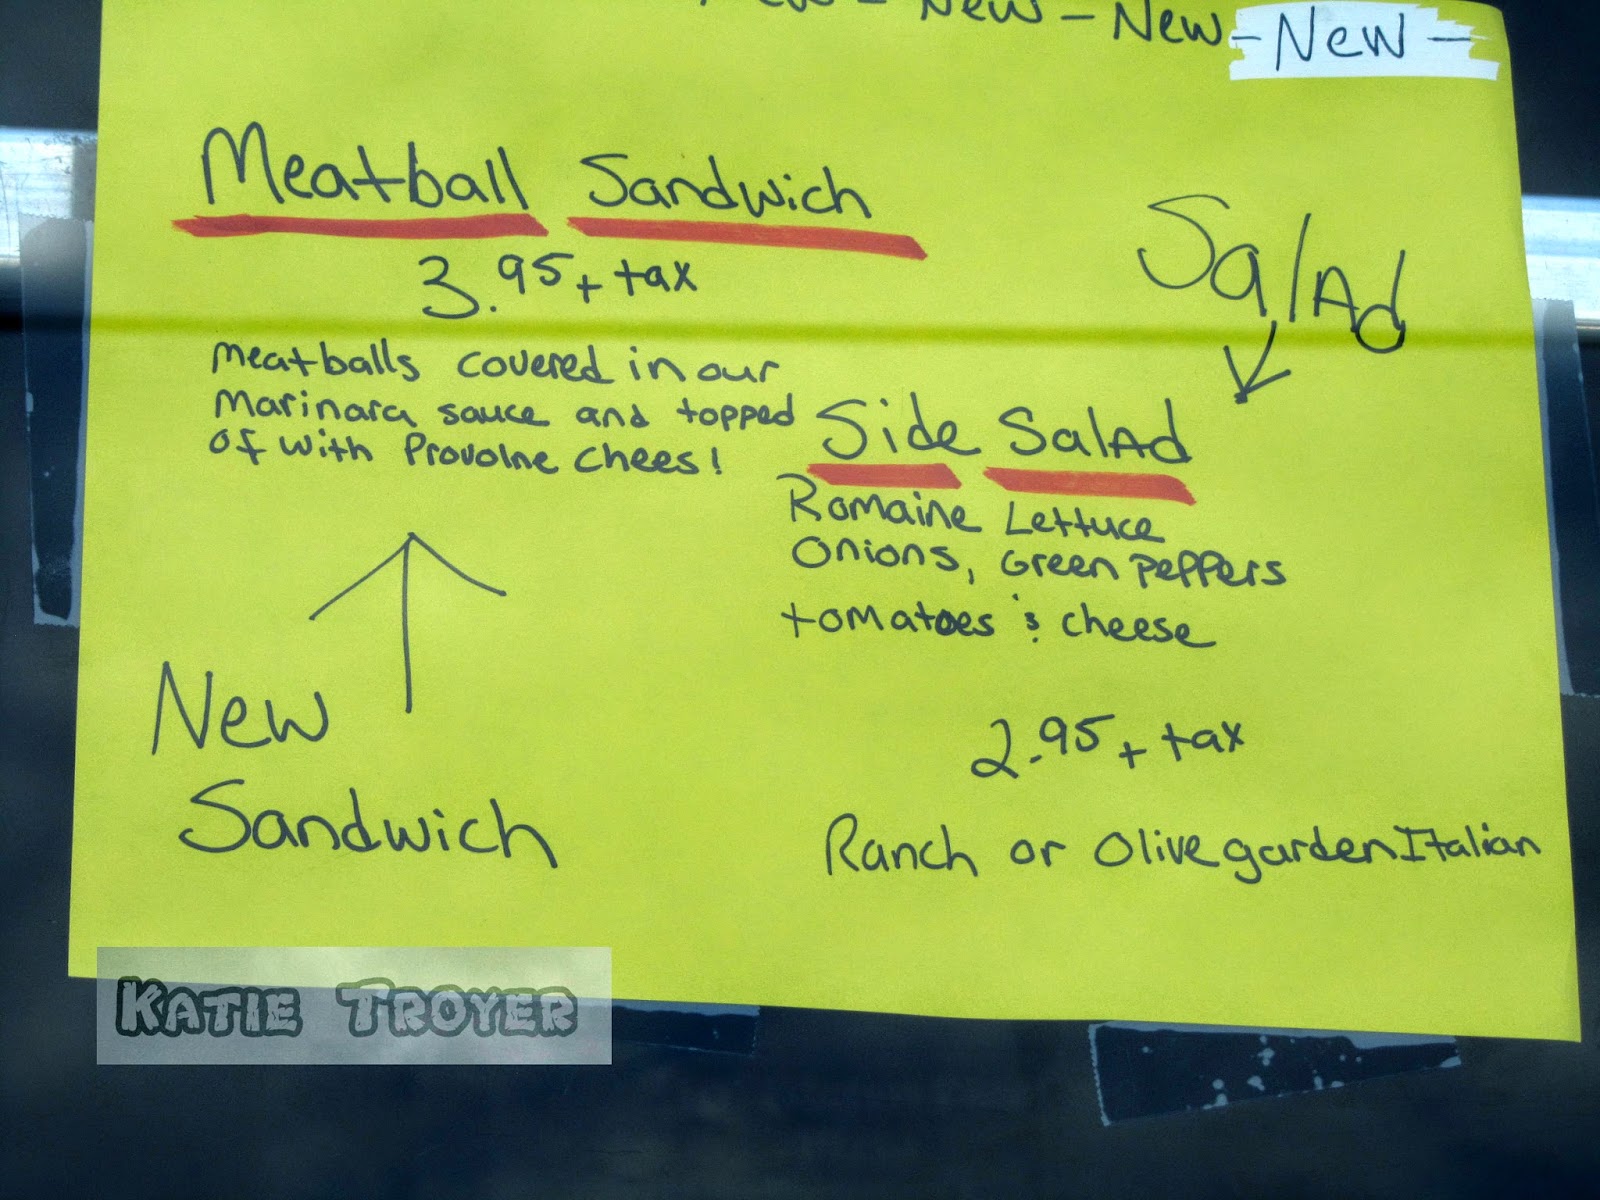 New - New - New - New -
Meatball Sandwich
3.95 + tax
Meatballs covered in our
Marinara sauce and topped
of with Provolne chees!
New
Sandwich
Salad
Side Salad
Romaine Lettuce
Onions, Green peppers
tomatoes & cheese
2.95 + tax
Ranch or Olive garden Italian
Katie Troyer